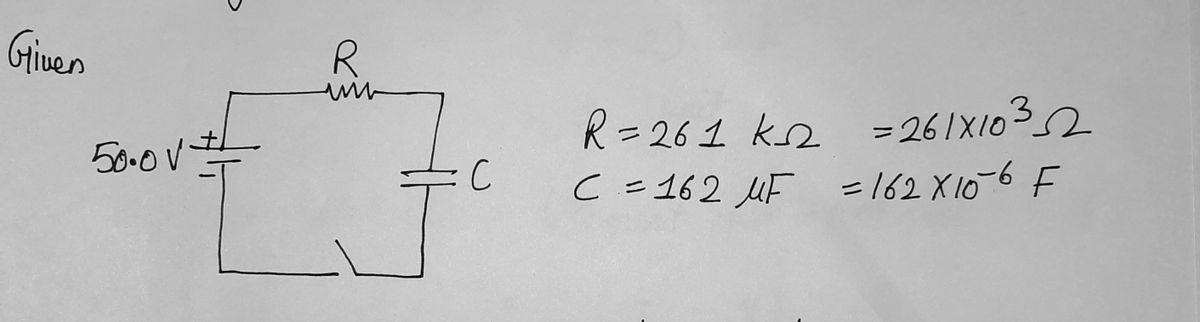 Given
R
50.0 V
+
-
C
R = 261 kΩ = 261X10³Ω
C = 162 μF = 162 X10⁻⁶ F